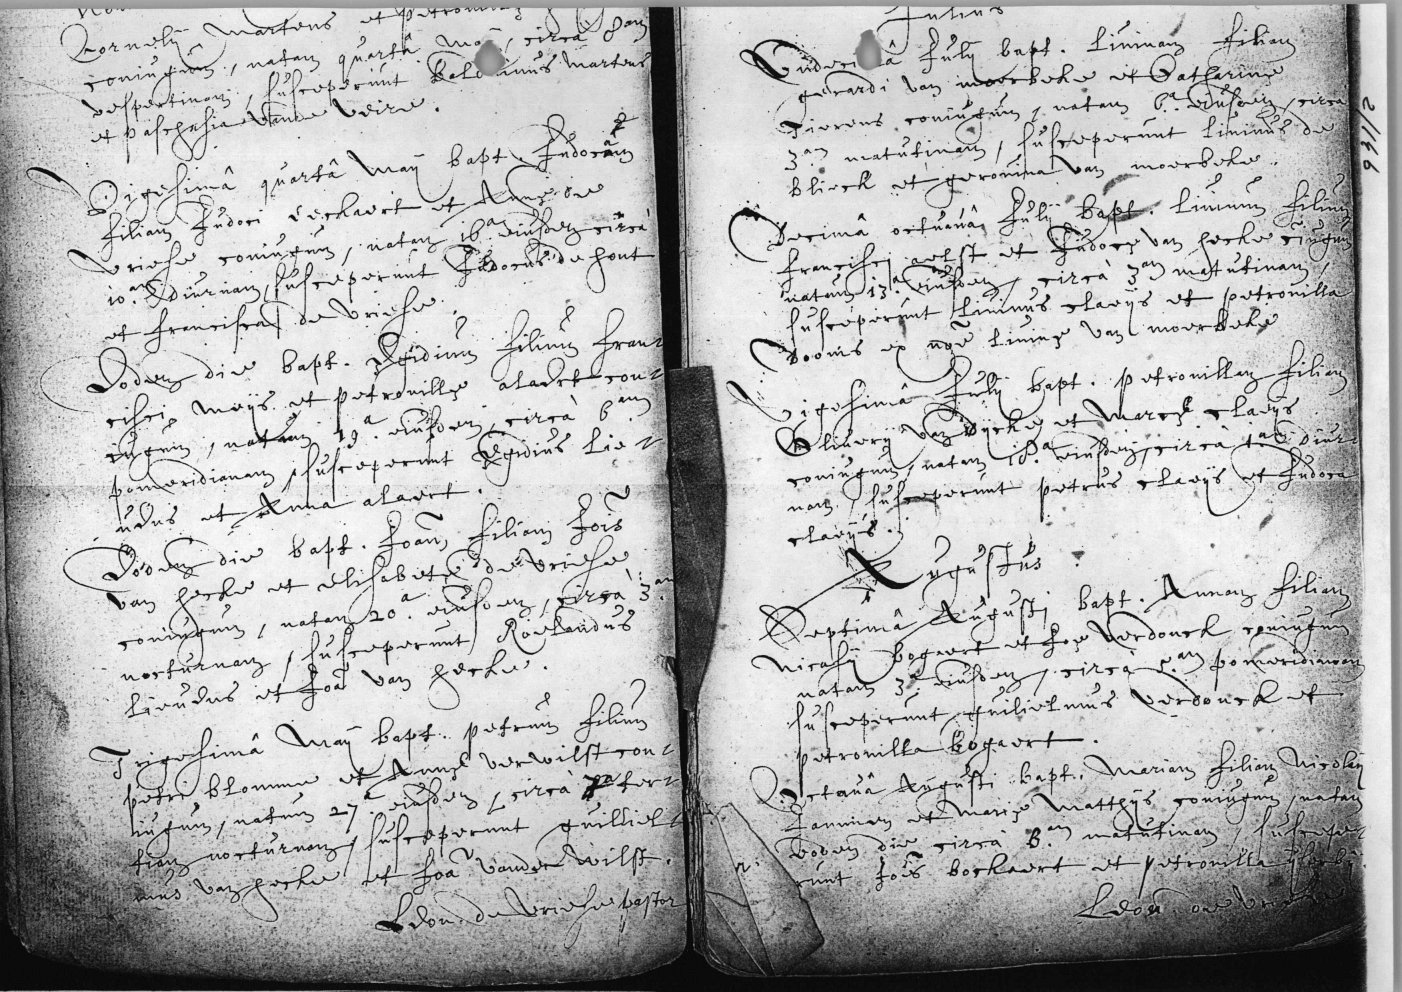 Cornelij Martens et petronillæ
coniugum, natam quartâ maij, circa 8am
vespertinam, susceperunt Balduinus Martens
et paschasia vande veire.
Vigesimâ quartâ Maij bapt. Judocam
filiam Judoci Eeckaert et Annæ de
Vriese coniugum, natam 16a eiusdem circà
10am diurnam, susceperunt Judocus de hont
et francisca de Vriese.
Eodem die bapt. Egidium filium fran-
cisci Meijs et petronillæ alaert con-
iugum, natum 19a eiusdem, circà 6am
pomeridianam, susceperunt Egidius Lie-
udus et Anna alaert.
Eodem die bapt. Joãm filiam Jois
van hecke et elisabetæ de Vriese
coniugum, natam 20a eiusdem, circà 3am
nocturnam, susceperunt Roelandus
Lieudus et Joã van hecke.
Trigesimâ Maij bapt. petrum filium
petri blomme et Annæ verwilst con-
iugum, natum 27a eiusdem, circà ter-
tiam nocturnam, susceperunt guilliel-
mus van hecke et Joã vander wilst.
Leon. de Vriese pastor
Julius
Julij bapt. Livinam filiam
gerardi van moerbeke et Catharinæ
Tierens coniugum, natam 6a eiusdem, circa
3am matutinam, susceperunt Livinus de
blieck et geronima van moerbeke.
Decimâ octavâ Julij bapt. Livinum filium
francisci aelst et Judocæ van hecke coiugum
natum 13a eiusdem, circà 3am matutinam,
susceperunt Livinus claeijs et petronilla
Dooms ex noe Livinæ van moerbeke
Vigesimâ Julij bapt. petronillam filiam
Oliverij van Dijcke et Marcæ claeijs
coniugum, natam 18a eiusdem, circà 1am diur-
nam, susceperunt petrus claeijs et Judoca
claeijs.
Augustus
Septimâ Augusti bapt. Annam filiam
Nicasij bogaert et Joæ Verdonck coniugum
natam 3a eiusdem, circà 5am pomeridianam
susceperunt guilielmus verdonck et
petronilla bogaert.
Octavâ Augusti bapt. Mariam filiam Nicolaij
Janninen et Mariæ Matthijs coniugum, natam
eodem die circà 8am matutinam, suscepe-
runt Jois bockaert et petronilla
Leon. de Vriese
9311/2